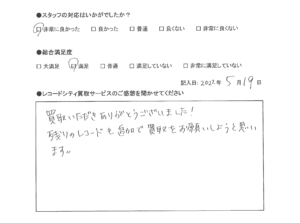 ●スタッフの対応はいかがでしたか？
□非常に良かった □良かった □普通 □良くない □非常に良くない
●総合満足度
□大満足 □満足 □普通 □満足していない □非常に満足していない
記入日:2022年5月19日
●レコードシティ買取サービスのご感想を聞かせてください
買取いただきありがとうございました!
残りのレコードも追加で買取をお願いしようと思い
ます。